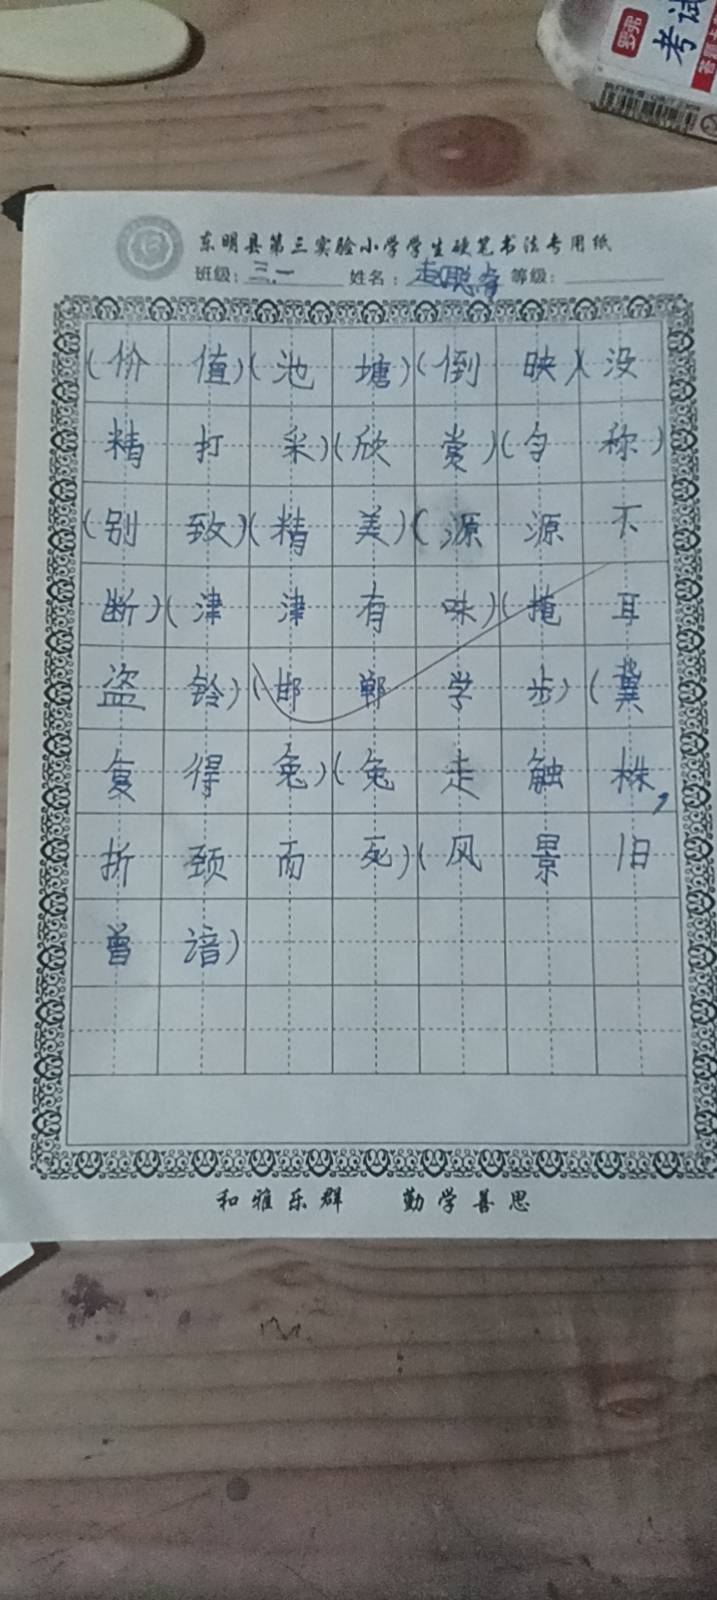 野弗
考试
答题卡
东明县第三实验小学学生硬笔书法专用纸
班级：三.一 姓名：赵聪睿 等级：
(价值)(池塘)(倒映)(没
精打采)(欣赏)(匀称)
(别致)(精美)(源源不
断)(津津有味)(掩耳
盗铃)(邯郸学步)(冀
复得兔)(兔走触株，
折颈而死)(风景旧
曾谙)
和雅乐群 勤学善思